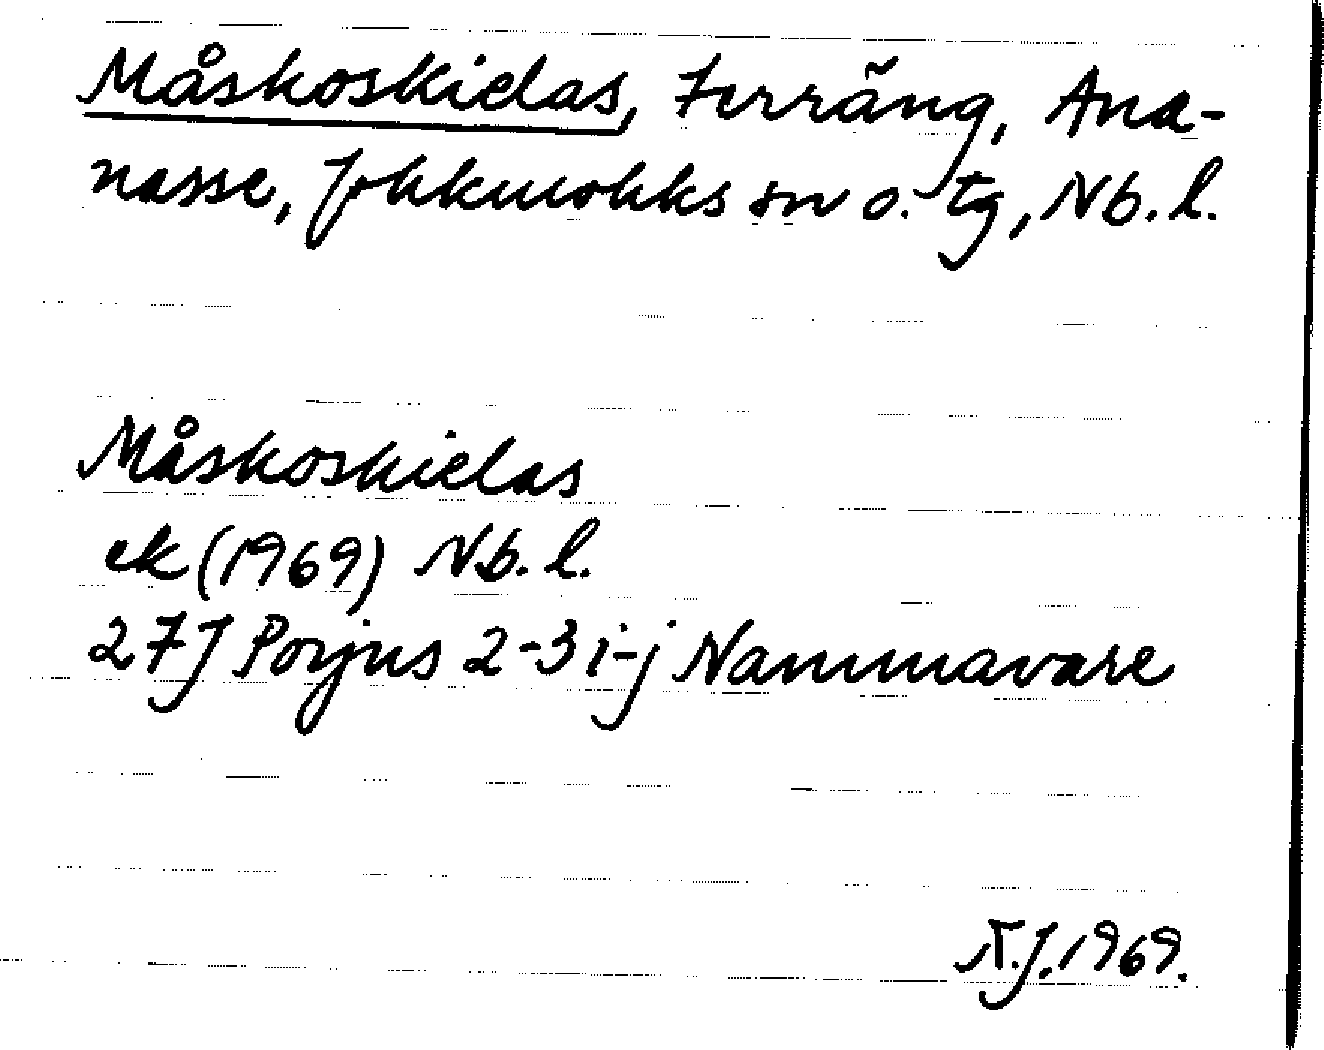 Måskoskielas, Terräng, Ana-
nasse, Jokkmokks sn o. tg, Nb. l.
Måskoskielas
ek (1969) Nb. l.
27J Porjus 2-3 i-j Nammavare
N.J. 1969.